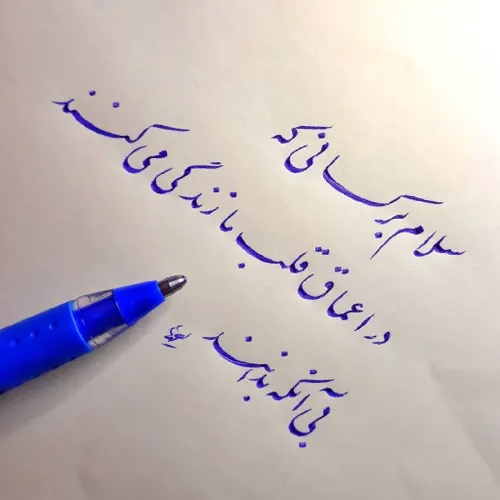 سلام بر کسانی که
در اعماق قلب ما زندگی می کنند
بی آنکه بدانند